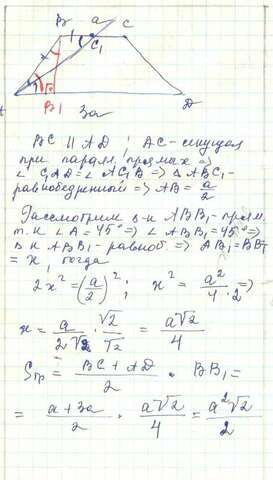 B a C
C₁
B₁ D
3a
BC || AD ; AC – секущая
при парал. прямых =>
∠ C₁AD = ∠ AC₁B => Δ ABC₁ –
равнобедренный => AB = a/2
Рассмотрим Δ-к ABB₁ – прям.
т.к ∠A = 45° => ∠ ABB₁ = 45° =>
Δк ABB₁ – равноб => AB₁ = BB₁
= x, тогда
2x² = (a/2)² ; x² = a²/4·2 =>
x = a/2√2 · √2/√2 = a√2/4
Sтр = BC + AD/2 · BB₁ =
= a + 3a/2 · a√2/4 = a²√2/2